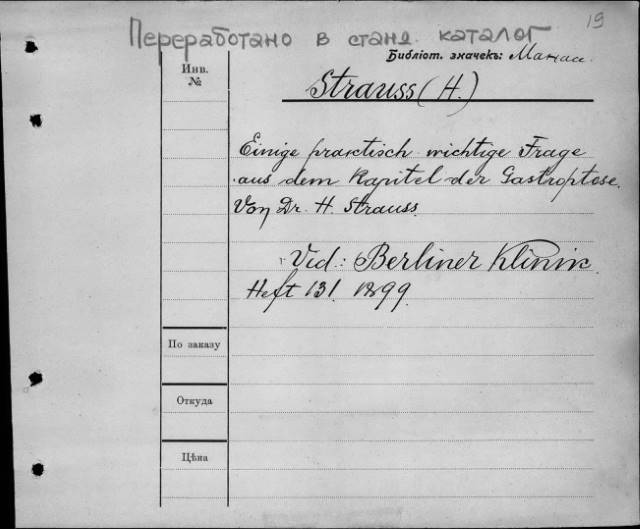 19
Переработано в станд. каталог
Библіот. значекъ:
Инв.
№
Strauss (H.)
Einige practisch wichtige Frage
aus dem Kapitel der Gastroptose.
Von Dr. H. Strauss.
Vid.: Berliner Klinik.
Heft 131. 1899.
По заказу
Откуда
Цѣна